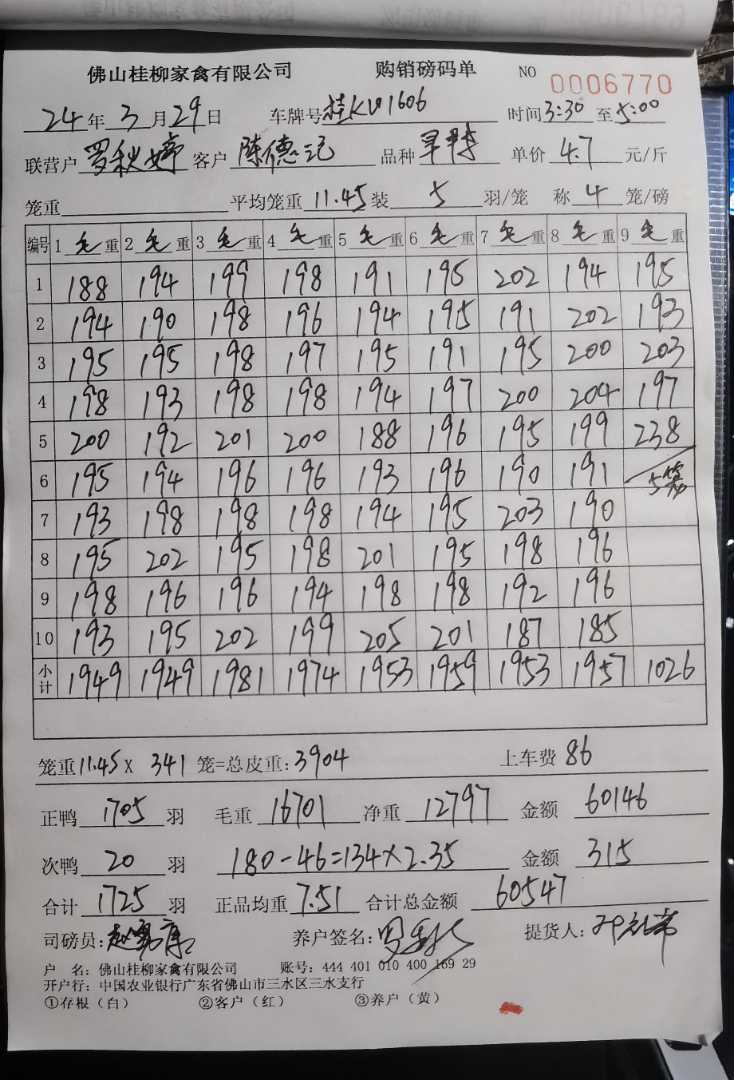 佛山桂柳家禽有限公司 购销磅码单 NO 0006770
24年3月29日 车牌号桂KU1606 时间3:30至5:00
联营户罗秋婷 客户陈德记 品种 单价4.7元/斤
笼重 平均笼重11.45装5羽/笼 称4笼/磅
编号 1毛重 2毛重 3毛重 4毛重 5毛重 6毛重 7毛重 8毛重 9毛重
1 188 194 199 198 191 195 202 194 195
2 194 190 198 196 194 195 191 202 193
3 195 195 198 197 195 191 195 200 203
4 198 193 198 198 194 197 200 204 197
5 200 192 201 200 188 196 195 199 238
6 195 194 196 196 193 196 190 191 5笼
7 193 198 198 198 194 195 203 190
8 195 202 195 198 201 195 198 196
9 198 196 196 194 198 198 192 196
10 193 195 202 199 205 201 187 185
小计 1949 1949 1981 1974 1953 1959 1953 1957 1026
笼重11.45X 341笼=总皮重:3904 上车费86
正鸭1705羽 毛重16701 净重12797 金额60146
次鸭20羽 180-46=134×2.35 金额315
合计1725羽 正品均重7.51 合计总金额60547
司磅员: 养户签名: 提货人:
户 名:佛山桂柳家禽有限公司 账号:444 401 010 400 169 29
开户行:中国农业银行广东省佛山市三水区三水支行
①存根（白） ②客户（红） ③养户（黄）